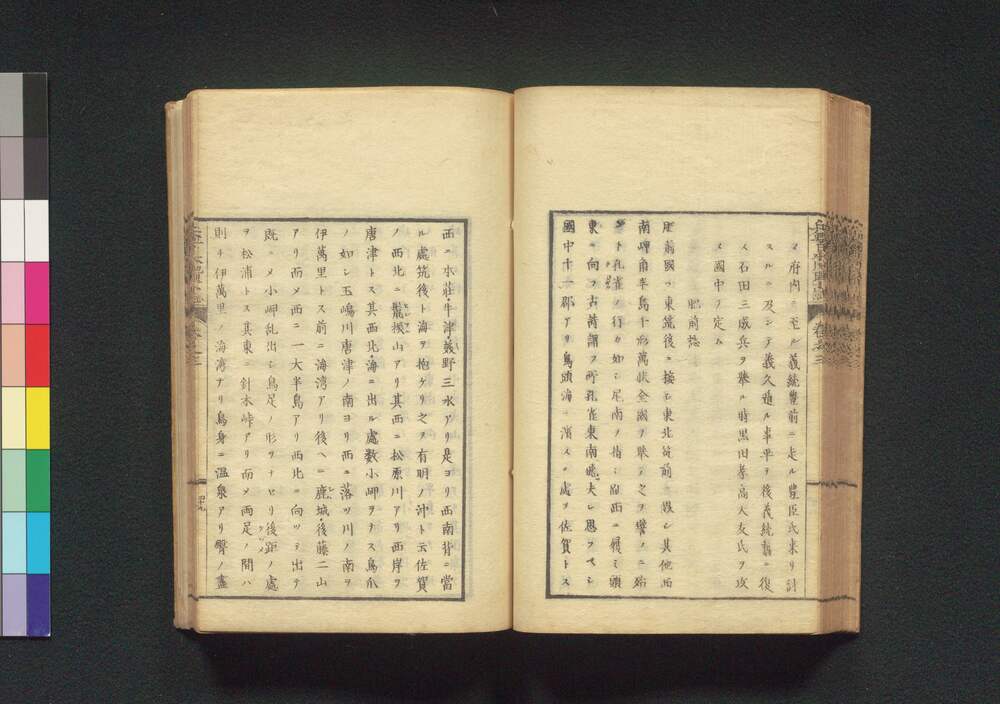 メ府内ニ至ル義統豊前ニ走ル豊臣氏来リ討
スルニ及シテ義久遁ル事平ヲ後義統舊ニ復
ス石田三成兵ヲ擧ル時黒田孝高大友氏ヲ攻
メ國中ヲ定ム
肥前誌
肥前國ハ東筑後ニ接シ東北筑前ニ界シ其他西
南岬角半島ナ形萬状全國ヲ之ヲ譬ノニ始
ント孔雀ノ行カ如シ尾南ヲ指シ西ニ履ミ頭
東ニ向フ古謂フ所孔雀東南飛大ヒ思フヘシ
國中十一郡アリ鳥頭海ニ濱スル處ヲ佐賀トス
西ニ本荘牛津嬉野三水アリ是ヨリ西南背ニ當
ル處筑後ト海ヲ抱ケリ之ヲ有明ノ沖ト云佐賀
ノ西北ニ龍摸山アリ其西ニ松原川アリ西岸ヲ
唐津トス其西北海ニ出ル處数小岬ヲナス鳥爪
ノ如シ玉嶋川唐津ノ南ヨリ西ニ落ツ川ノ南ヲ
伊萬里トス前ニ海湾アリ後ヘニ鹿城後藤二山
アリ而メ西ニ一大半島アリ西北ニ向ツテ出テ
既ニメ小岬乱出シ鳥足ノ形ヲナセリ後距ノ處
ヲ松浦トス其東ニ針木峠アリ而メ両足ノ間ハ
則チ伊萬里ノ海湾ナリ鳥身ニ温泉アリ臀ノ盡